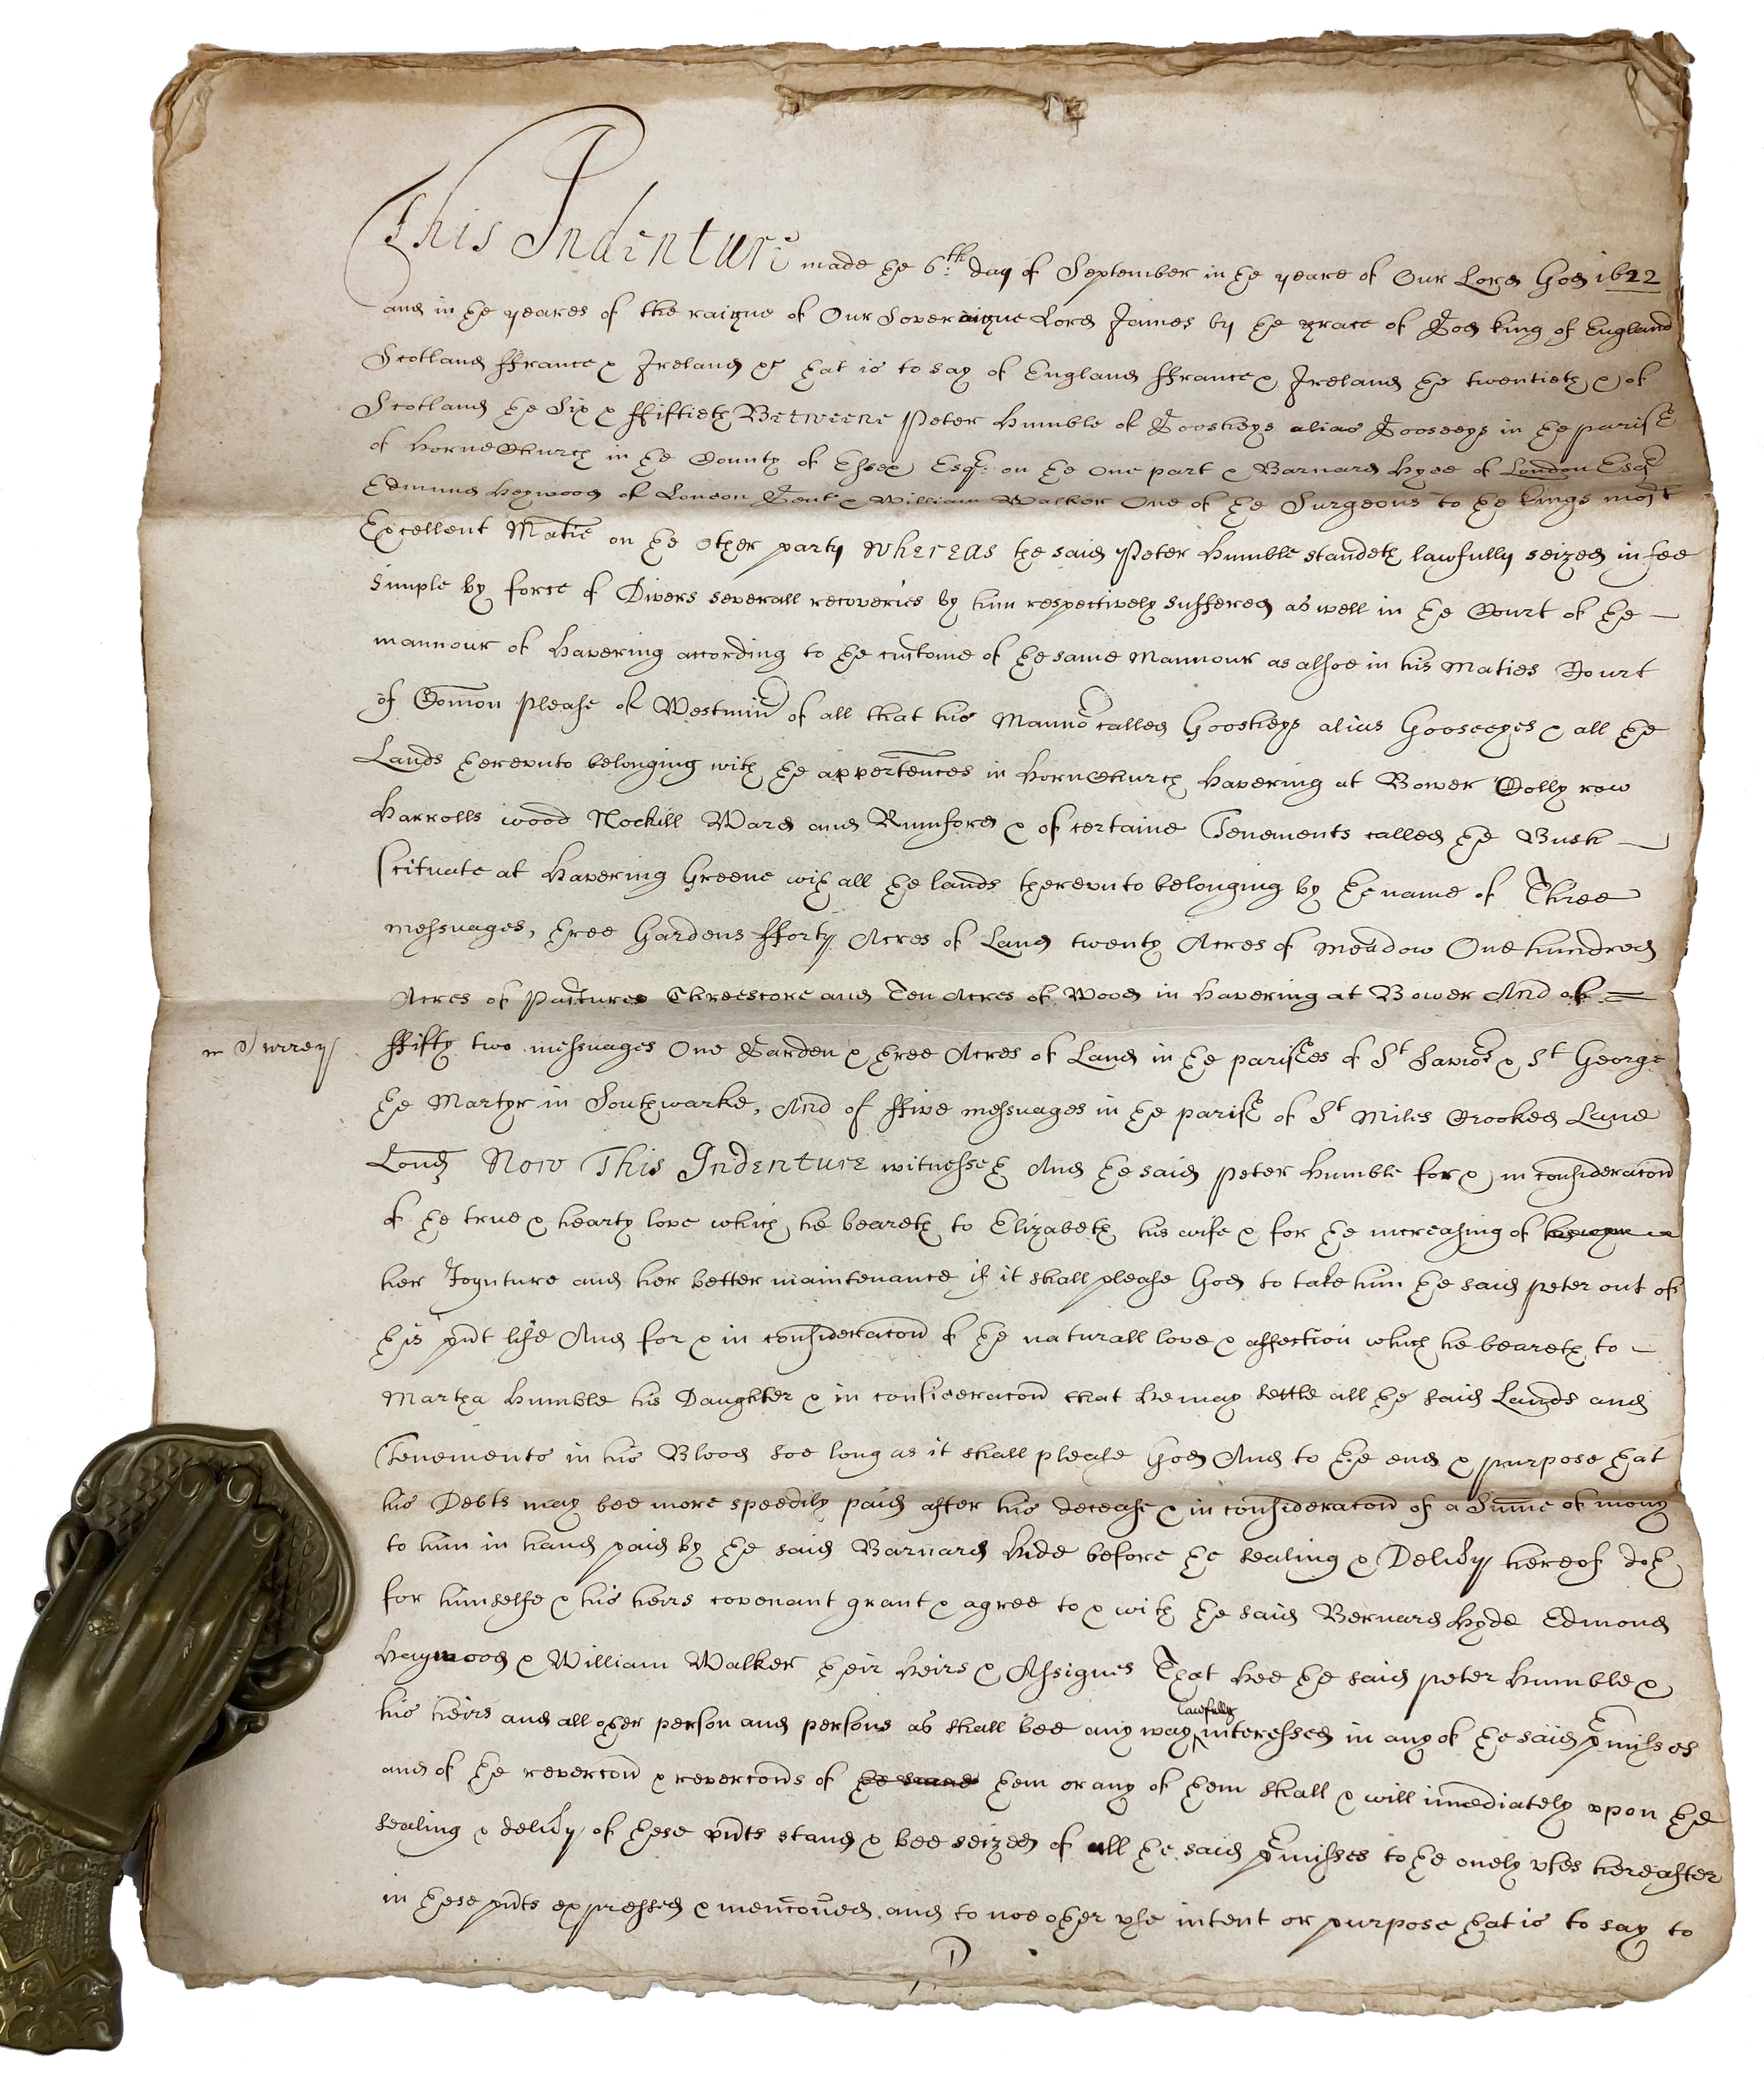 This Indenture made the 6th: day of September in the yeare of Our Lord God 1622
and in the yeares of the raigne of Our Soveraigne Lord James by the grace of God king of England
Scotland ffrance & Ireland &c that is to say of England ffrance & Ireland the twentieth & of
Scotland the Six & ffiftieth Betweene Peter Humble of Goosheys alias Gooseeys in the parish
of HorneChurch in the County of Essex Esqr: on the One part & Barnard Hyde of London Esqr
Edmund Heywood of London Gent & William Walker One of the Surgeons to the kings most
Excellent Matie on the Other party Whereas the said Peter Humble standeth lawfully seized in fee
simple by force of Divers severall recoveries by him respectively suffered as well in the Court of the
mannour of Havering according to the custome of the same Mannour as alsoe in his Maties Court
of Comon please of Westmin of all that his Manno called Goosheys alias Gooseeyes & all the
Lands therevnto belonging with the appertences in HornChurch Havering at Bower Colly row
Harrolls wood Nockill Ward and Rumford & of certaine Tenements called the Bush
scituate at Havering Greene with all the lands therevnto belonging by the name of Three
messuages, three Gardens fforty Acres of Land twenty Acres of meadow One hundred
Acres of Pasture Threescore and Ten Acres of Wood in Havering at Bower And of
in Surrey
ffifty two messuages One Garden & three Acres of Land in the parishes of St Saviors & St George
the Martyr in Southwarke, And of ffive messuages in the parish of St Miles Crooked Lane
Lond Now This Indenture witnesseth And the said Peter Humble for & in consideracon
of the true & hearty love which he beareth to Elizabeth his wife & for the increasing of
her Joynture and her better maintenance if it shall please God to take him the said Peter out of
this pnt life And for & in consideracon of the naturall love & affection which he beareth to
Martha Humble his Daughter & in consideracon that he may settle all the said Lands and
Tenements in his Blood soe long as it shall please God And to the end & purpose that
his Debts may bee more speedily paid after his decease & in consideracon of a Sume of mony
to him in hand paid by the said Barnard Hide before the sealing & Delivy hereof doth
for himselfe & his heirs covenant grant & agree to & with the said Bernard Hyde Edmond
Haywood & William Walker their Heirs & Assignes That hee the said Peter Humble &
his heirs and all other person and persons as shall bee any way lawfully interessed in any of the said pmisses
and of the revercon & revercons of the same them or any of them shall & will imediately vpon the
sealing & delivy of these pnts stand & bee seized of all the said pmisses to the onely vses hereafter
in these pnts expressed & menconed and to noe other vse intent or purpose that is to say to